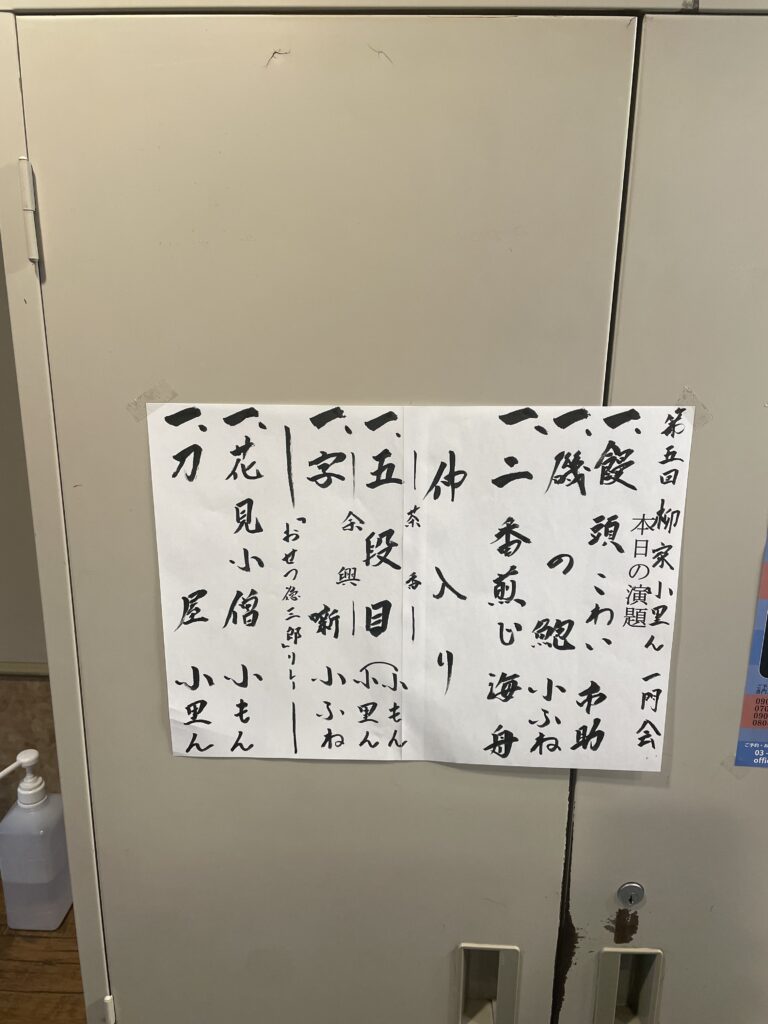 第五回 柳家小里ん 一門会
本日の演題
一、饅頭こわい 市助
一、磯の鮑 小ふね
一、二番煎じ 海舟
仲入り
―茶番―
一、五段目 (小もん
小里ん
―余興―
一、字噺 小ふね
―「おせつ徳三郎」リレー―
一、花見小僧 小もん
一、刀屋 小里ん
03-